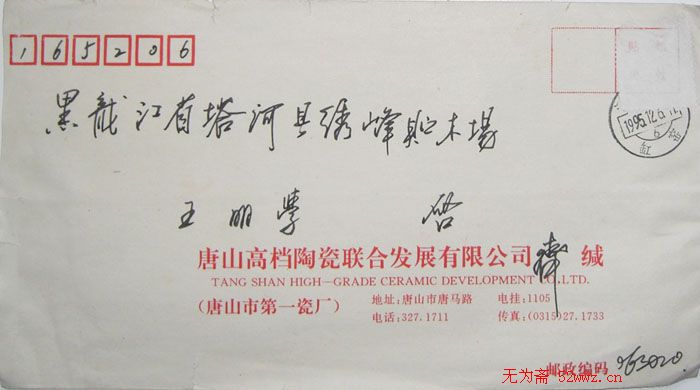 165206
贴 邮
票 处
1995.12.6
6
黑龙江省塔河县绣峰贮木場
王明學 启
唐山高档陶瓷联合发展有限公司 缄
TANG SHAN HIGH—GRADE CERAMIC DEVELOPMENT CO.LTD.
(唐山市第一瓷厂)
地址:唐山市唐马路 电挂:1105
电话:327.1711 传真:(0315)27.1733
邮政编码 063020
无为斋 52wwz.cn